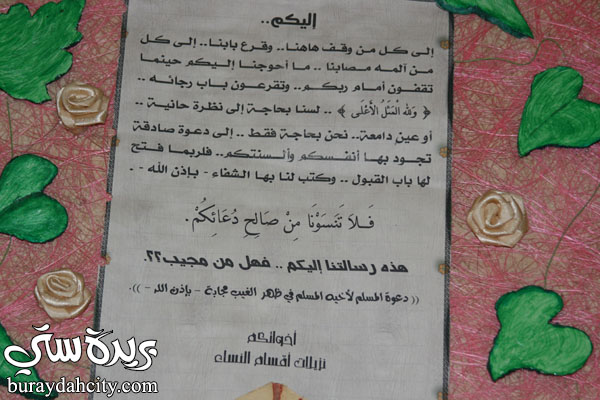 إليكم..
إلى كل من وقف هاهنا.. وقرع بابنا.. إلى كل
من آلمه مصابنا .. ما أحوجنا إليكم حينما
تقفون أمام ربكم.. وتقرعون باب رجائه ..
﴿ وَلله المَثَلُ الأَعْلَى ﴾ .. لسنا بحاجة إلى نظرة حانية ..
أو عين دامعة.. نحن بحاجة فقط .. إلى دعوة صادقة
تجود بها أنفسكم وألسنتكم.. فلربما فتح
لها باب القبول .. وكتب لنا بها الشفاء - بإذن الله - .
فَلاَ تَنسَوْنَا مِنْ صَالِحِ دُعَائِكُمْ .
هذه رسالتنا إليكم .. فهل من مجيب؟؟.
(( دعوة المسلم لأخيه المسلم في ظهر الغيب مجابة - بإذن الله - )).
أخواتكم
نزيلات أقسام النساء
بريدة ستي
buraydahcity.com